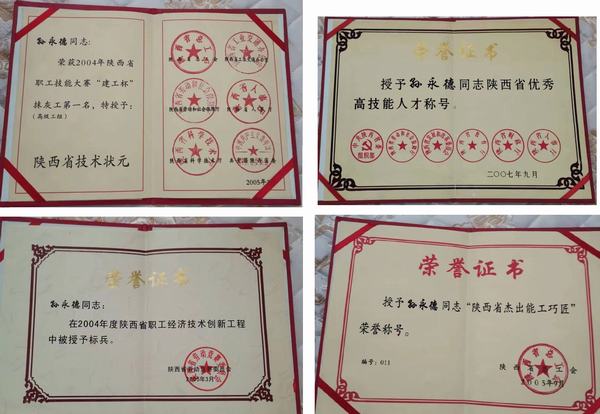 孙永德同志：
荣获2004年陕西省
职工技能大赛“建工杯”
抹灰工第一名，特授予：
(高级工组)
陕西省技术状元
陕西省总工会
陕西省劳动和社会保障厅
陕西省人事厅
陕西省科学技术厅
2005年
荣誉证书
授予孙永德同志陕西省优秀
高技能人才称号。
二〇〇七年九月
荣誉证书
孙永德同志：
在2004年度陕西省职工经济技术创新工程
中被授予标兵。
2005年3月
荣誉证书
授予孙永德同志“陕西省杰出能工巧匠”
荣誉称号。
编号：011
陕西省总工会
2005年9月